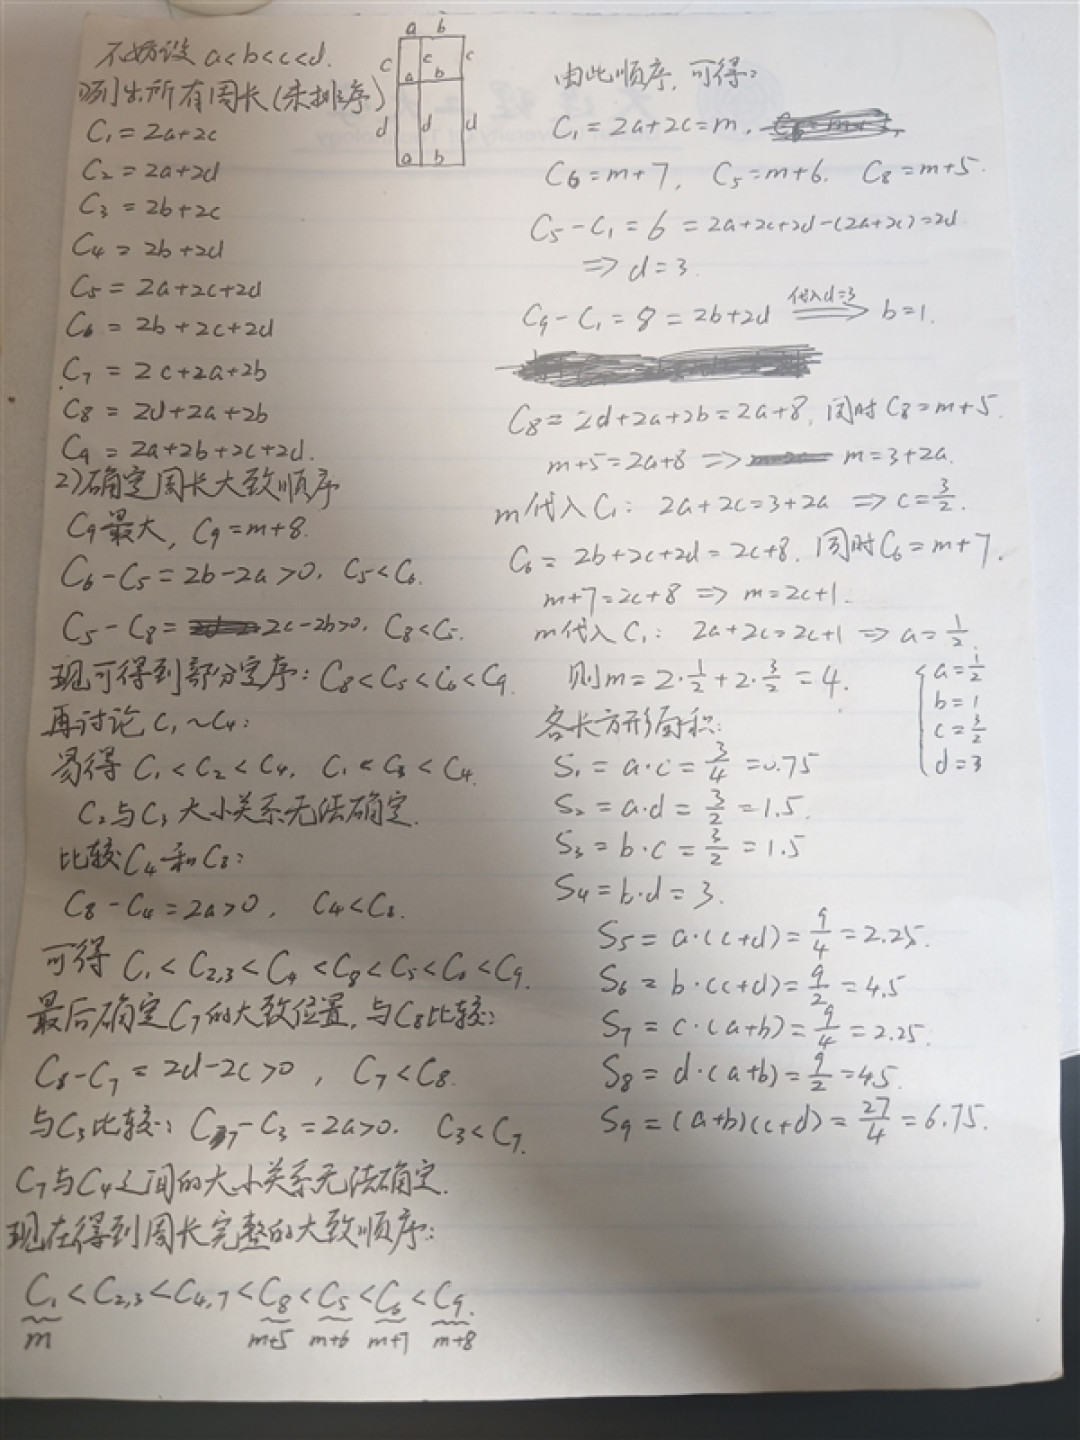 不妨设 a<b<c<d.
1)列出所有周长(未排序)
C₁ = 2a+2c
C₂ = 2a+2d
C₃ = 2b+2c
C₄ = 2b+2d
C₅ = 2a+2c+2d
C₆ = 2b+2c+2d
C₇ = 2c+2a+2b
C₈ = 2d+2a+2b
C₉ = 2a+2b+2c+2d.
2)确定周长大致顺序
C₉最大, C₉=m+8.
C₆-C₅=2b-2a>0. C₅<C₆.
C₅-C₈= 2c-2b>0. C₈<C₅.
现可得到部分定序: C₈<C₅<C₆<C₉.
再讨论 C₁~C₄:
易得 C₁<C₂<C₄, C₁<C₃<C₄.
C₂与C₃大小关系无法确定.
比较C₄和C₈:
C₈-C₄=2a>0, C₄<C₈.
可得 C₁<C₂,₃<C₄<C₈<C₅<C₆<C₉.
最后确定C₇的大致位置, 与C₈比较:
C₈-C₇=2d-2c>0, C₇<C₈.
与C₃比较: C₇-C₃=2a>0. C₃<C₇.
C₇与C₄之间的大小关系无法确定.
现在得到周长完整的大致顺序:
C₁<C₂,₃<C₄,₇<C₈<C₅<C₆<C₉.
m m+5 m+6 m+7 m+8
a b
c c c
a b
d d d
a b
由此顺序, 可得:
C₁=2a+2c=m.
C₆=m+7, C₅=m+6. C₈=m+5.
C₅-C₁=6=2a+2c+2d-(2a+2c)=2d
⇒ d=3.
C₉-C₁=8=2b+2d 代入d=3 ⇒ b=1.
C₈=2d+2a+2b=2a+8, 同时C₈=m+5.
m+5=2a+8 ⇒ m=3+2a.
m代入C₁: 2a+2c=3+2a ⇒ c=3/2.
C₆=2b+2c+2d=2c+8. 同时C₆=m+7.
m+7=2c+8 ⇒ m=2c+1.
m代入C₁: 2a+2c=2c+1 ⇒ a=1/2.
则m=2·1/2+2·3/2=4.
a=1/2
b=1
c=3/2
d=3
各长方形面积:
S₁=a·c=3/4=0.75
S₂=a·d=3/2=1.5.
S₃=b·c=3/2=1.5
S₄=b·d=3.
S₅=a·(c+d)=9/4=2.25.
S₆=b·(c+d)=9/2=4.5
S₇=c·(a+b)=9/4=2.25.
S₈=d·(a+b)=9/2=4.5.
S₉=(a+b)(c+d)=27/4=6.75.